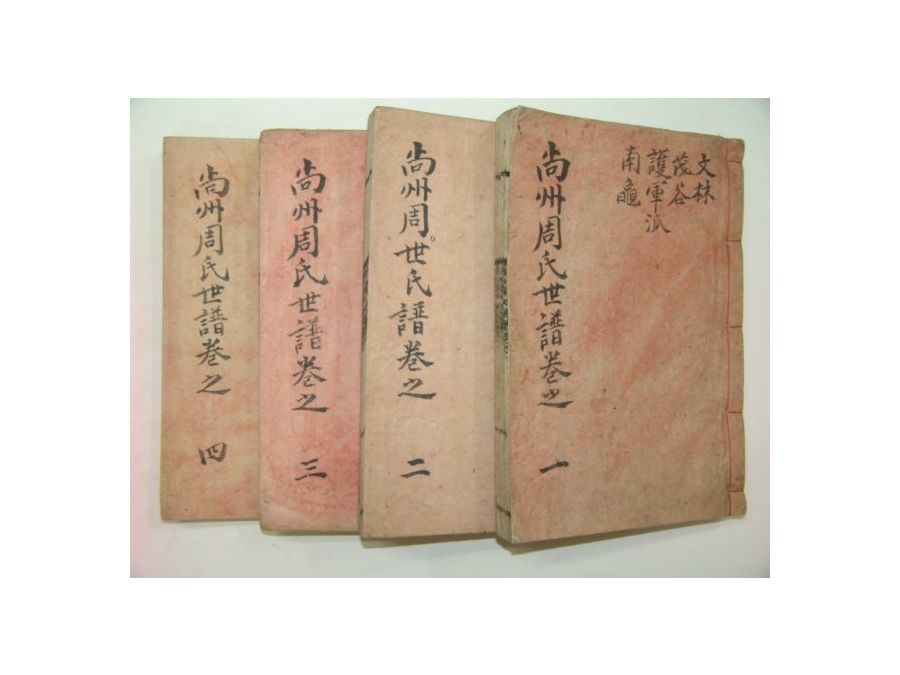 文林
茂谷
護軍派
南龜
尙州周氏世譜卷之
一
尙州周世氏譜卷之
二
尙州周氏世譜卷之
三
尙州周氏世譜卷之
四